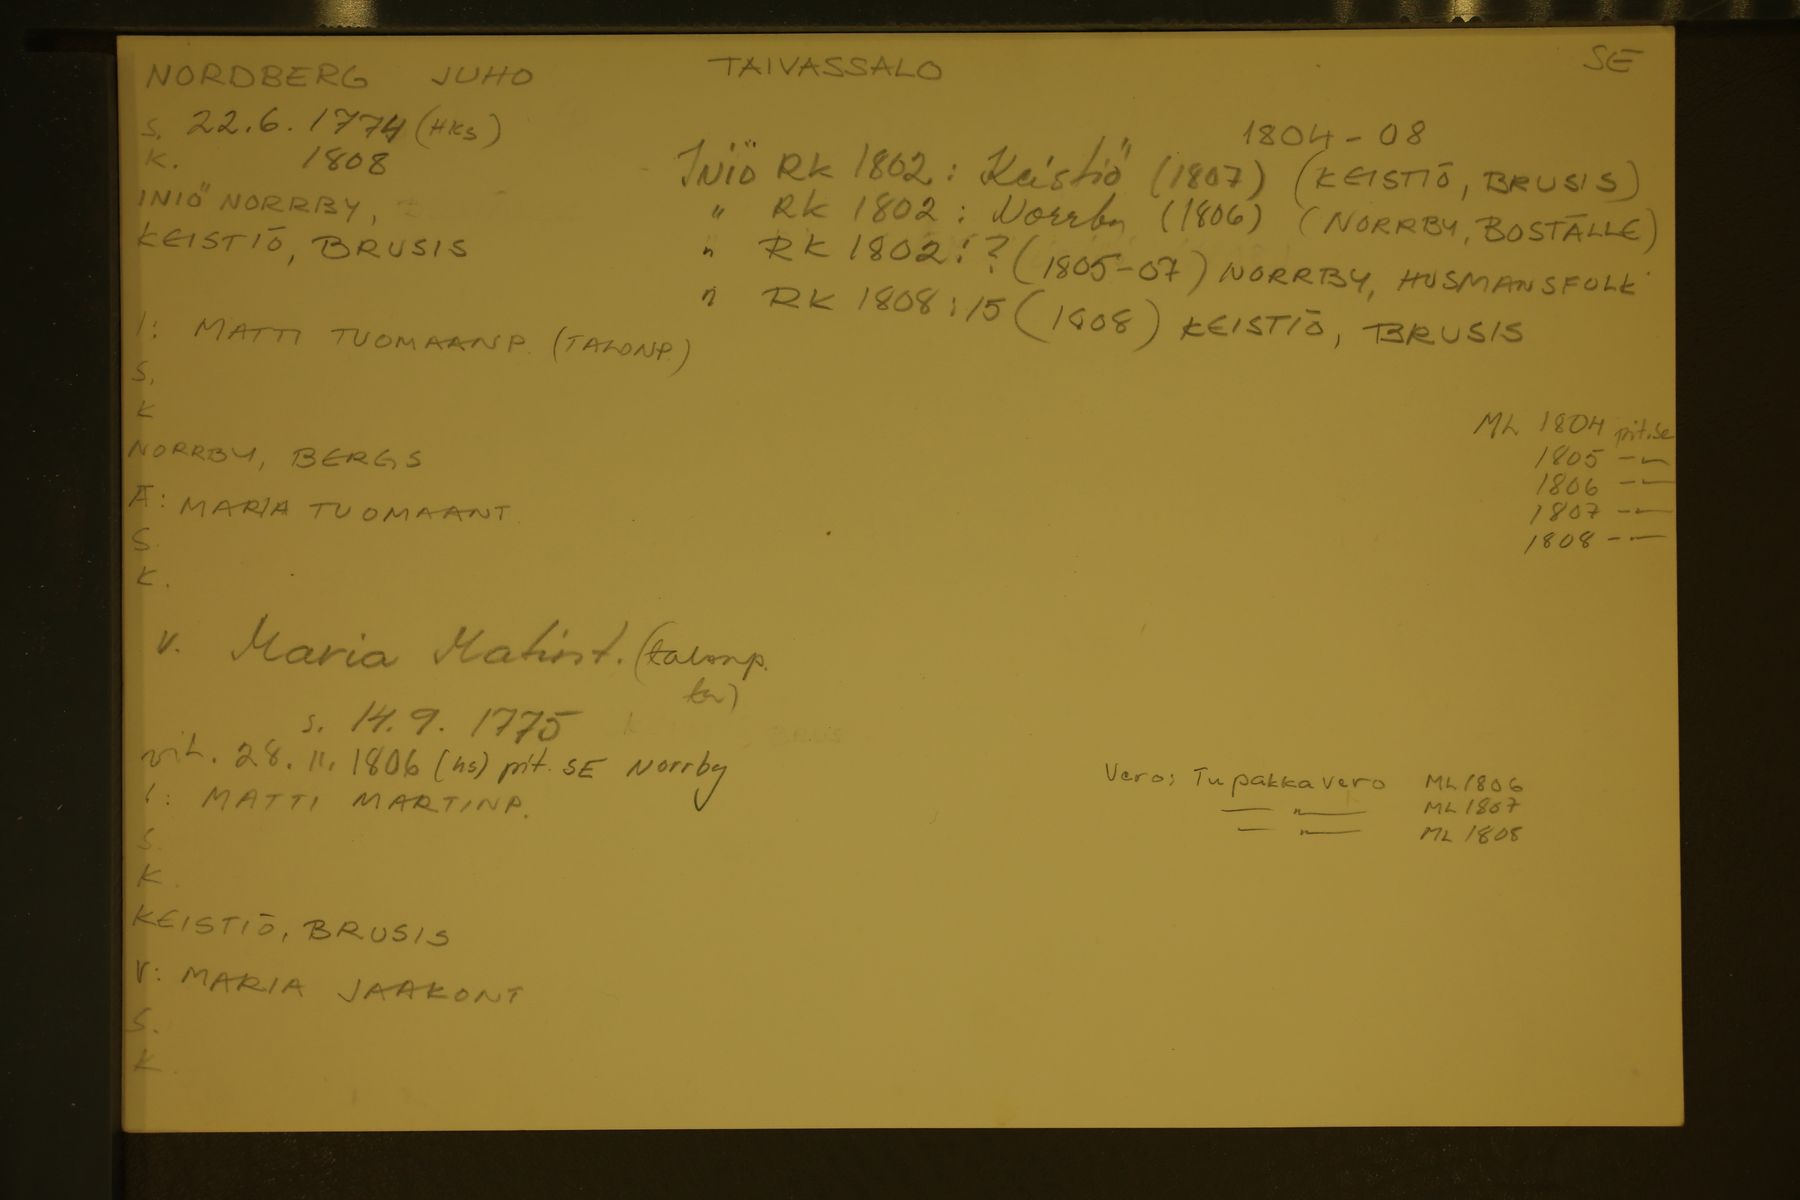 NORDBERG JUHO TAIVASSALO SE
s. 22.6.1774 (HKS)
K. 1808
INIÖ NORRBY,
KEISTIÖ, BRUSIS
1804-08
Iniö RK 1802: Keistiö (1807) (KEISTIÖ, BRUSIS)
" RK 1802: Norrby (1806) (NORRBY, BOSTÄLLE)
" RK 1802:? (1805-07) NORRBY, HUSMANSFOLK
" RK 1808:15 (1808) KEISTIÖ, BRUSIS
I: MATTI TUOMAANP. (TALONP.)
S.
K
NORRBY, BERGS
Ä: MARIA TUOMAANT.
S.
K.
ML 1804 pit.se
1805 -"-
1806 -"-
1807 -"-
1808 -"-
V. Maria Matint. (talonp.
tr)
s. 14.9. 1775
vih. 28.11.1806 (hs) pit. SE Norrby
I: MATTI MARTINP.
S.
K.
KEISTIÖ, BRUSIS
V: MARIA JAAKONT
S.
K.
Vero: Tupakkavero ML 1806
-"- ML 1807
-"- ML 1808